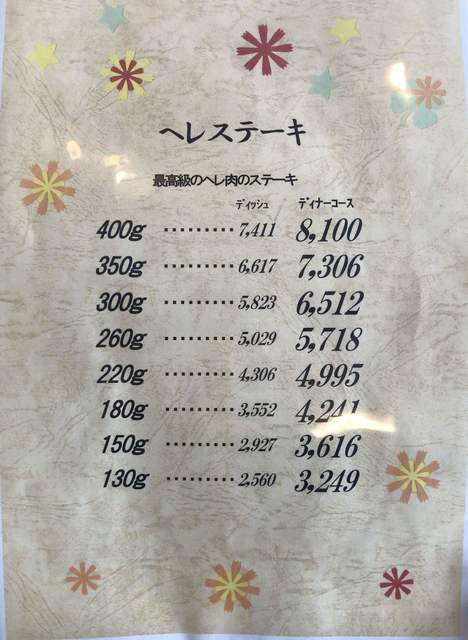 ヘレステーキ
最高級のヘレ肉のステーキ
ディッシュ ディナーコース
400g ・・・・・・・・・ 7,411 8,100
350g ・・・・・・・・・ 6,617 7,306
300g ・・・・・・・・・ 5,823 6,512
260g ・・・・・・・・・ 5,029 5,718
220g ・・・・・・・・・ 4,306 4,995
180g ・・・・・・・・・ 3,552 4,241
150g ・・・・・・・・・ 2,927 3,616
130g ・・・・・・・・・ 2,560 3,249